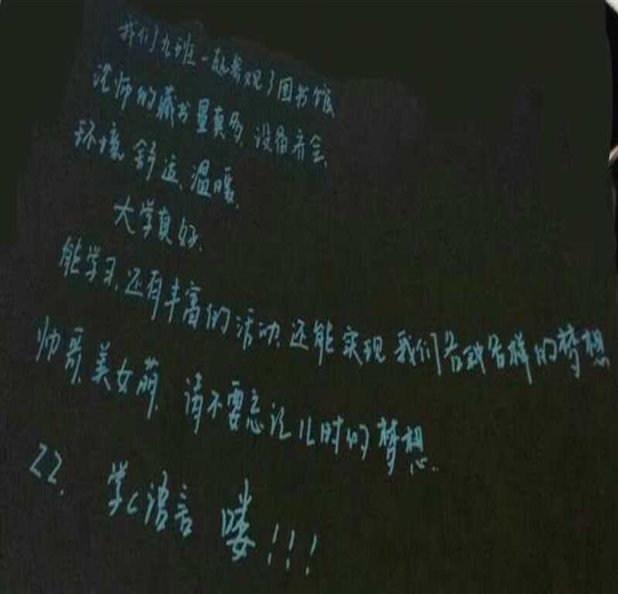 我们九班一起参观了图书馆
沈师的藏书量真多,设备齐全,
环境舒适,温暖,
大学真好,
能学习,还有丰富的活动,还能实现我们各种各样的梦想
帅哥,美女萌,请不要忘记儿时的梦想,
22, 学C语言喽!!!